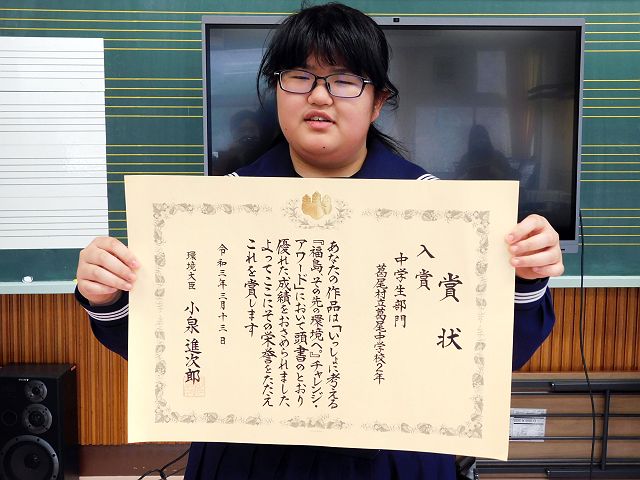 賞状
入賞
中学生部門
葛尾村立葛尾中学校2年
あなたの作品は「いっしょに考える
『福島、その先の環境へ。』チャレンジ・
アワード」において頭書のとおり
優れた成績をおさめられました
よってここにその栄誉をたたえ
これを賞します
令和三年三月十三日
環境大臣 小泉進次郎